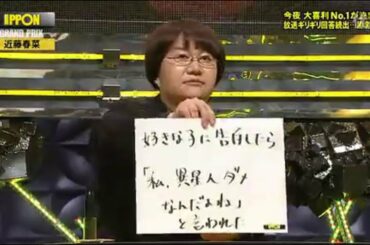 IPPON
GRAND PRIX
近藤春菜
今夜 大喜利No.1が
放送ギリギリ回答続出
好きな子に告白したら
「私、異星人ダメ
なんだよね」
と言われた